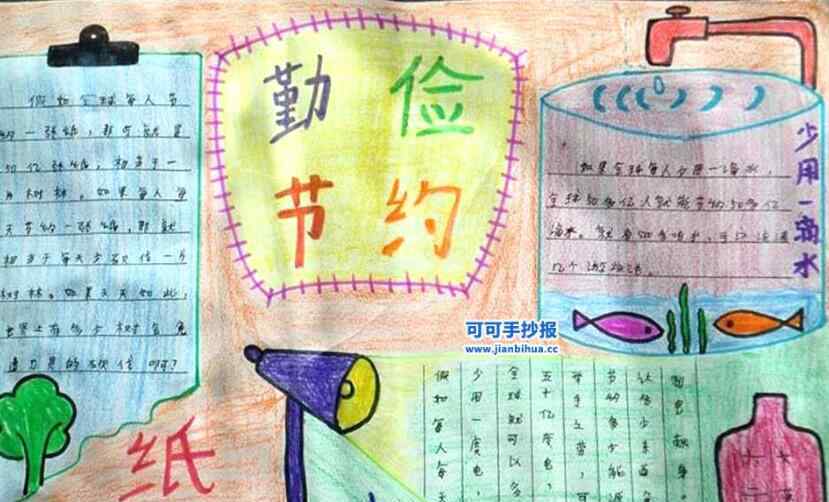 勤俭
节约
假如全球每人节
约一张纸,那可就是
50亿张纸,相当于一
片树林。如果每人每
天节约一张纸,那就
相当于每天少砍伐一片
树林。如果天天如此,
世界上有多少树会免
遭刀具的砍伐啊?
纸
如果全球每人少用一滴水,
全球50多亿人就能节约50多亿
滴水。就有50多吨水,可以注满
几个游泳池。
少用一滴水
可可手抄报
www.jianbihua.cc
假如每人每天
少用一度电,
全球就可以多
五十亿度电,
举手之劳,可
节约多少能源